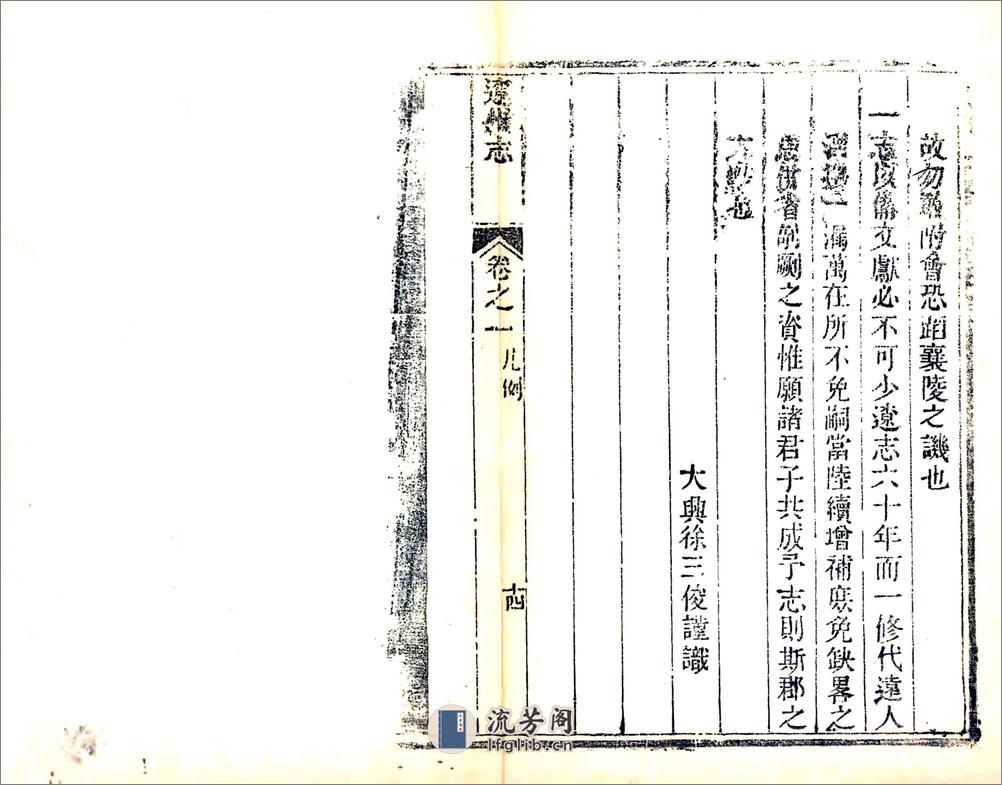 故勿敢附會恐蹈襄陵之譏也
一志以備文獻必不可少遼志六十年而一修代遠人
漏萬在所不免嗣當陸續增補庶免缺畧之
之資惟願諸君子共成予志則斯郡之
也
大興徐三俊謹識
遼州志
卷之一
凡例
十四
流芳阁
lfglib.cn